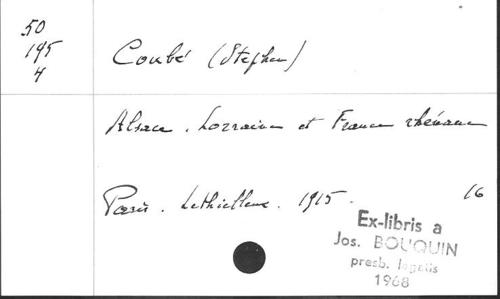 50
195
4
Coubé (Stephen)
Alsace. Lorraine et France rhénane
Paris. Lethielleux. 1915. 16
Ex-libris a
Jos. BOUQUIN
presb. legatis
1968